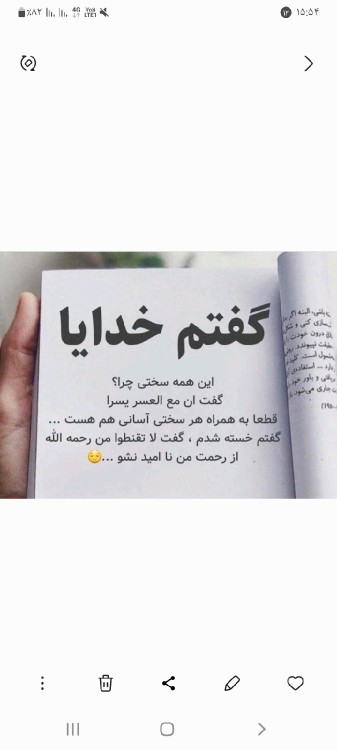 ٪۸۲ 4G Vo) LTE1 ۱۲ ۱۵:۵۴
گفتم خدایا
این همه سختی چرا؟
گفت ان مع العسر یسرا
قطعا به همراه هر سختی آسانی هم هست ...
گفتم خسته شدم ، گفت لا تقنطوا من رحمه الله
از رحمت من نا امید نشو ...😌